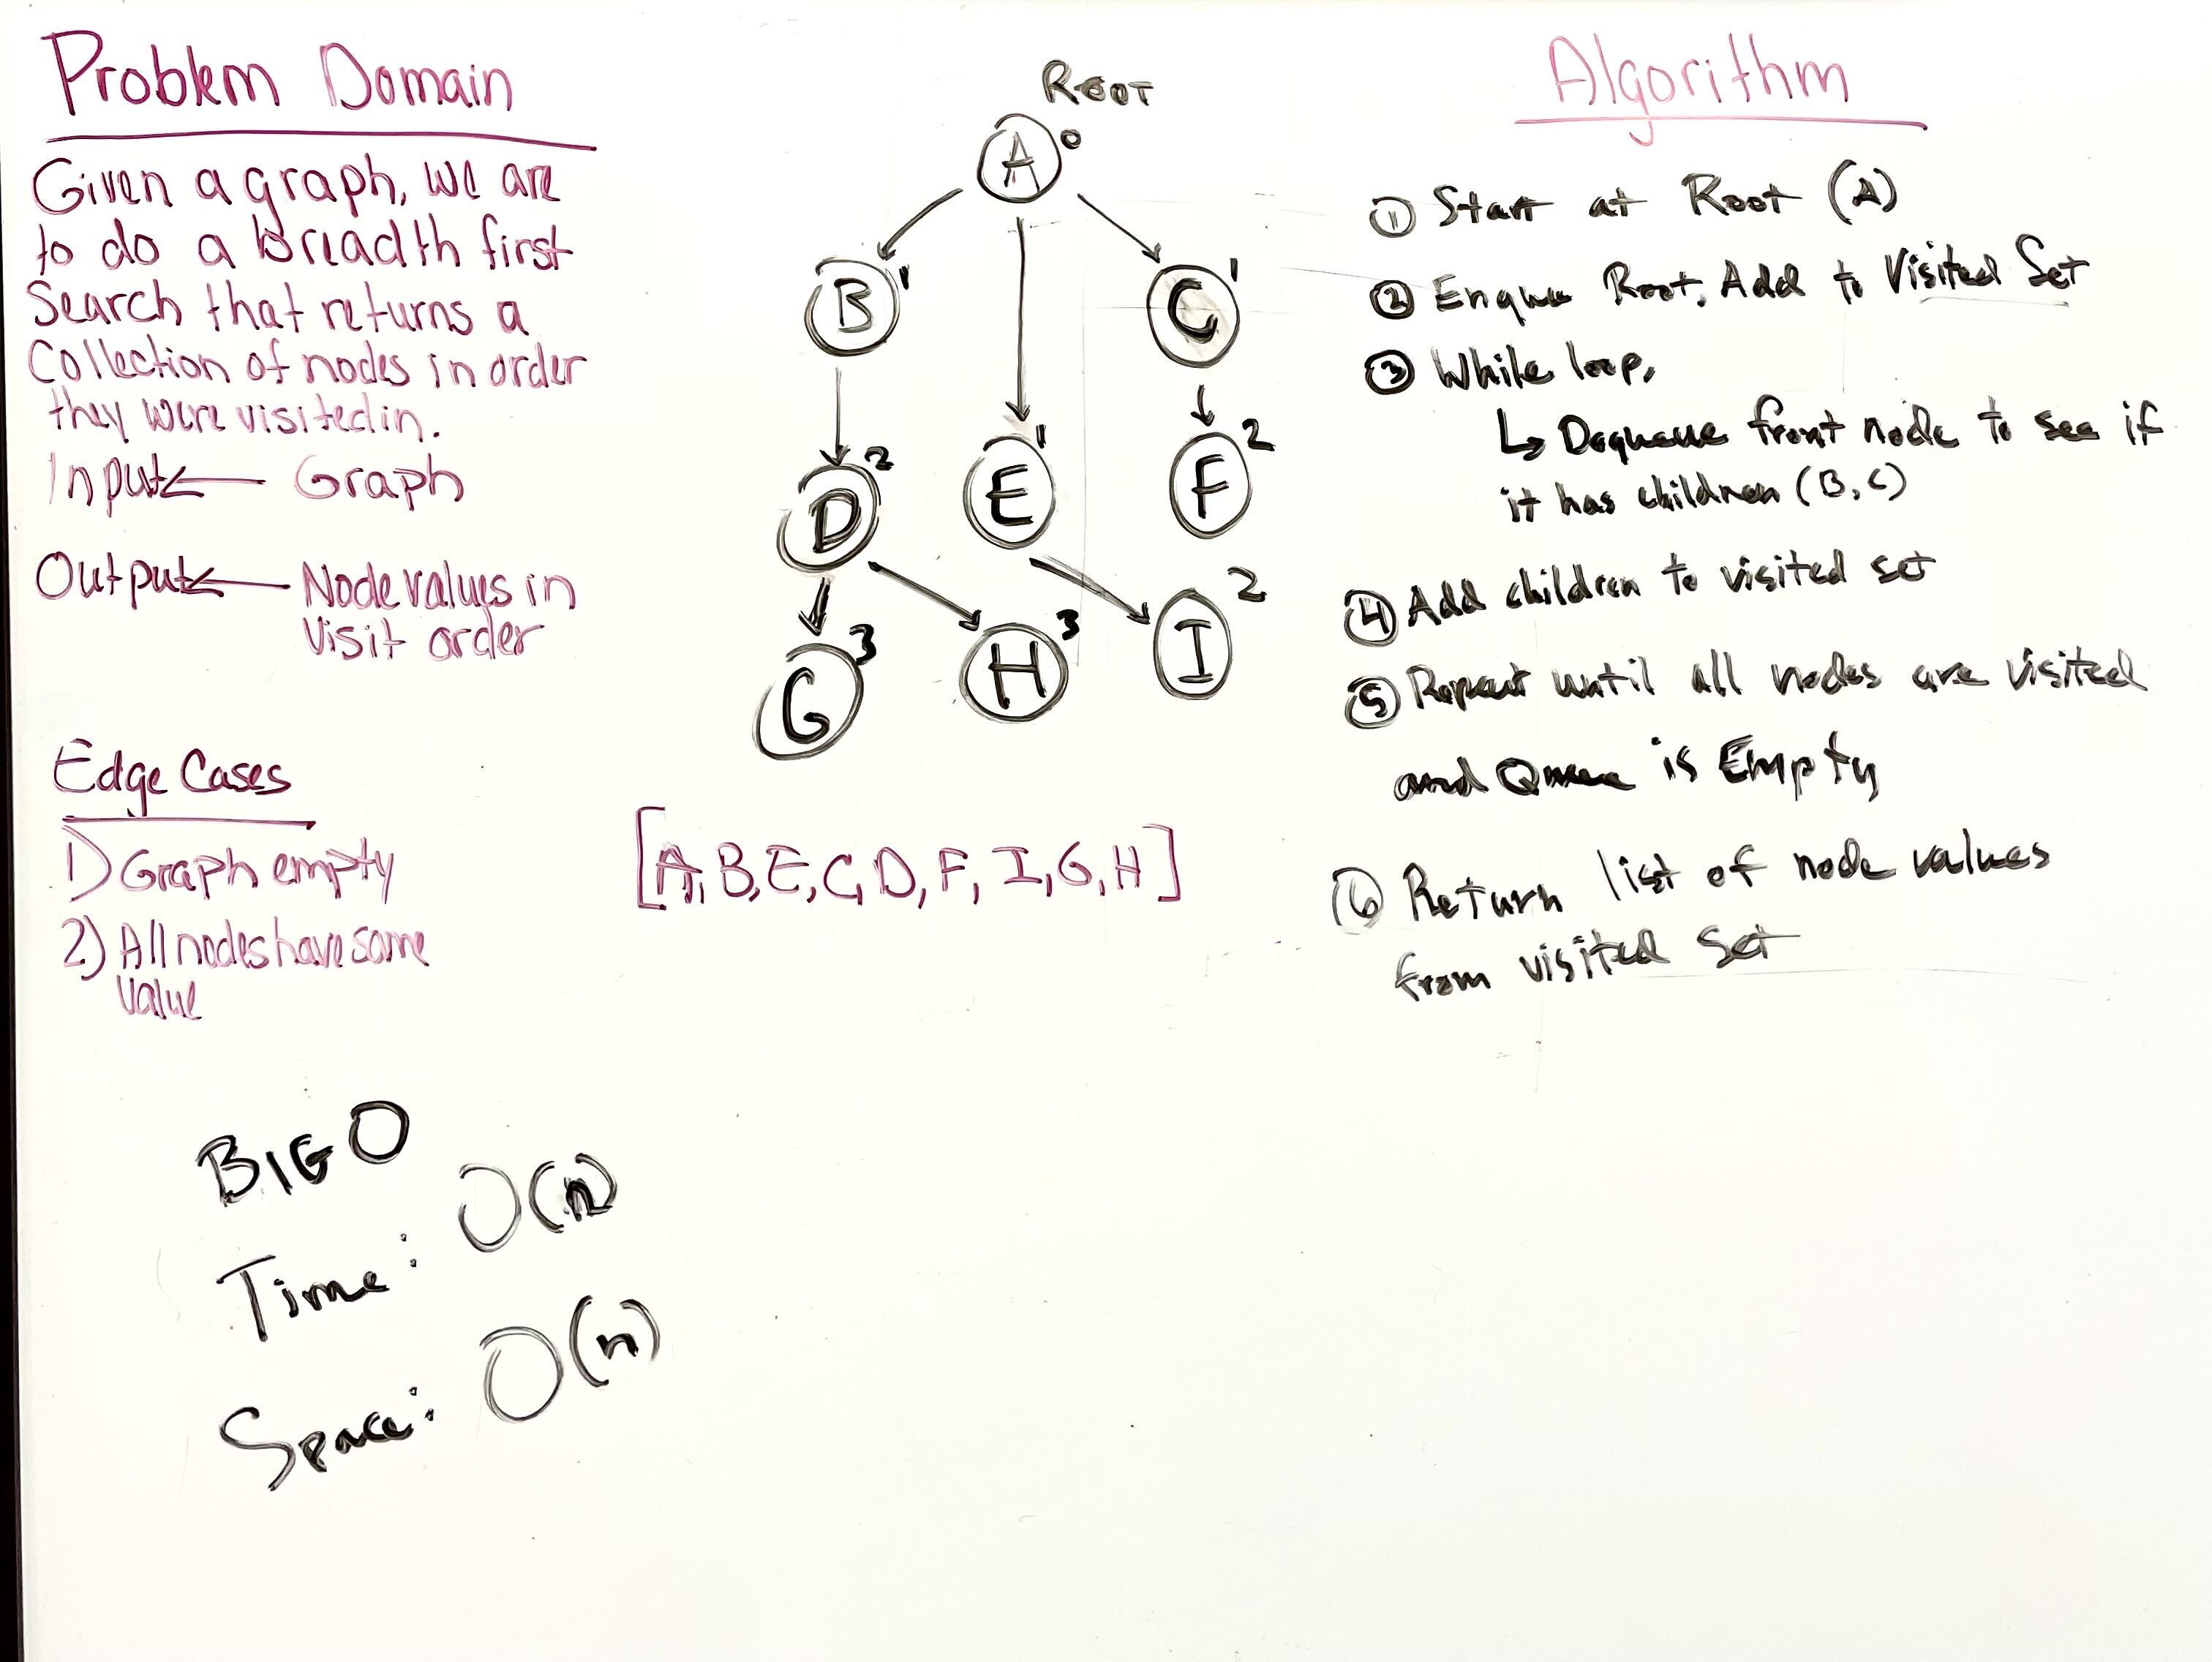 Problem Domain
Given a graph, we are
to do a breadth first
Search that returns a
Collection of nodes in order
they were visited in.
Input ← Graph
Output ← Node values in
Visit order
Edge Cases
1) Graph empty
2) All nodes have same
Value
BIG O
Time: O(n)
Space: O(n)
ROOT
A 0
B 1
C 1
D 2
E 1
F 2
G 3
H 3
I 2
[A, B, E, C, D, F, I, G, H]
Algorithm
① Start at Root (A)
② Enque Root, Add to Visited Set
③ While loop,
↳ Dequeue front node to see if
it has children (B, C)
④ Add children to visited set
⑤ Repeat until all nodes are visited
and Queue is Empty
⑥ Return list of node values
from visited set